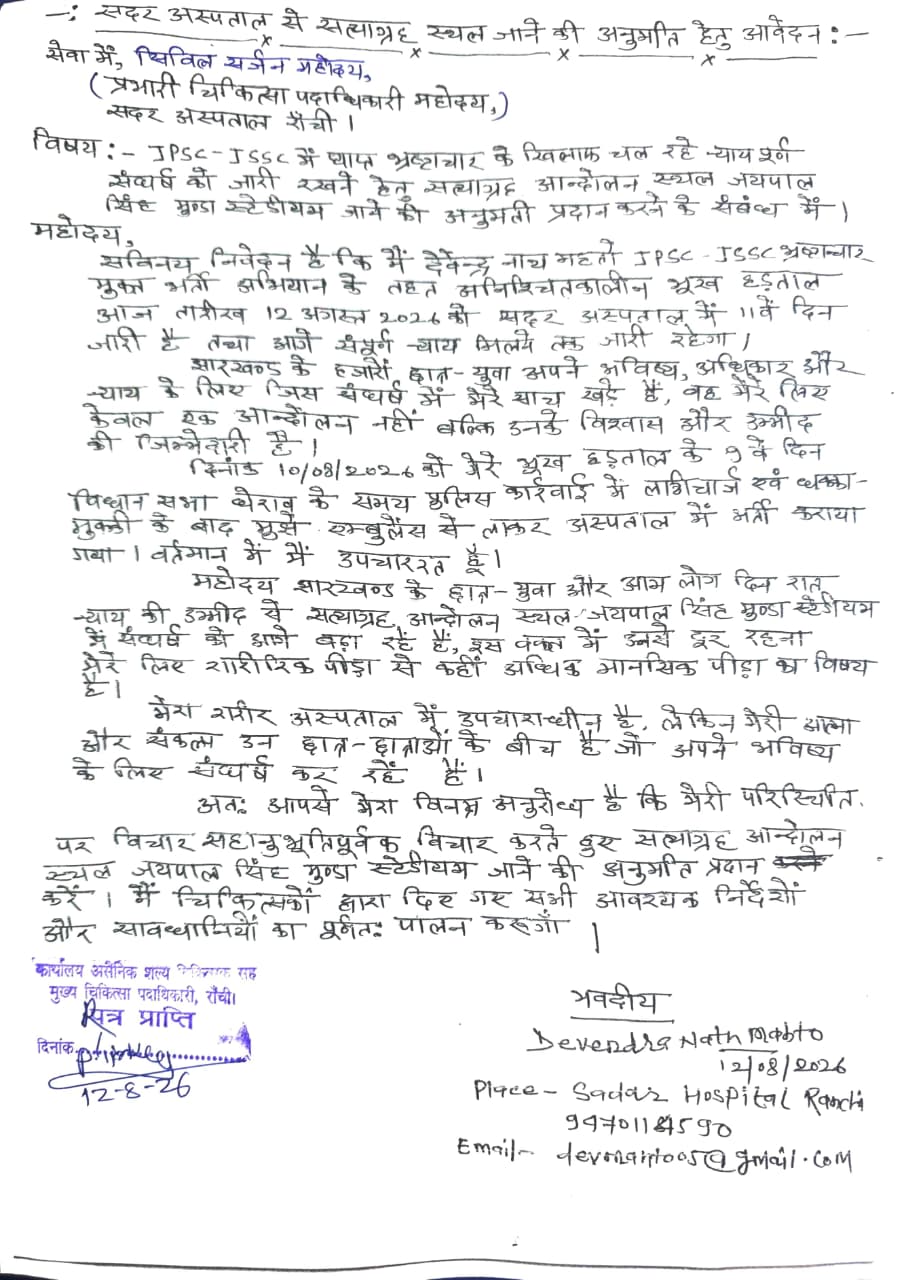 -: सदर अस्पताल से सत्याग्रह स्थल जाने की अनुमति हेतु आवेदन :-
सेवा में, सिविल सर्जन महोदय,
(प्रभारी चिकित्सा पदाधिकारी महोदय,)
सदर अस्पताल राँची ।
विषय :- JPSC-JSSC में व्याप्त भ्रष्टाचार के खिलाफ चल रहे न्यायपूर्ण
संघर्ष को जारी रखने हेतु सत्याग्रह आन्दोलन स्थल जयपाल
सिंह मुण्डा स्टेडीयम जाने की अनुमती प्रदान करने के संबंध में ।
महोदय,
सविनय निवेदन है कि मैं देवेन्द्र नाथ महतो JPSC-JSSC भ्रष्टाचार
मुक्त भर्ती अभियान के तहत अनिश्चितकालीन भूख हड़ताल
आज तारीख 12 अगस्त 2026 को सदर अस्पताल में 11वें दिन
जारी है तथा आगे संपूर्ण न्याय मिलने तक जारी रहेगा ।
झारखण्ड के हजारों छात्र-युवा अपने भविष्य, अधिकार और
न्याय के लिए जिस संघर्ष में मेरे साथ खड़े हैं, वह मेरे लिए
केवल एक आन्दोलन नहीं बल्कि उनके विश्वास और उम्मीद
की जिम्मेदारी है ।
दिनांक 10/08/2026 को मेरे भूख हड़ताल के 9 वें दिन
विधान सभा घेराव के समय पुलिस कार्रवाई में लाठीचार्ज एवं धक्का-
मुक्की के बाद मुझे एम्बुलेंस से लाकर अस्पताल में भर्ती कराया
गया । वर्तमान में मैं उपचाररत हूँ ।
महोदय झारखण्ड के छात्र-युवा और आम लोग दिन रात
न्याय की उम्मीद से सत्याग्रह आन्दोलन स्थल जयपाल सिंह मुण्डा स्टेडीयम
में संघर्ष को आगे बढ़ा रहें हैं, इस वक्त में उनसे दूर रहना
मेरे लिए शारीरिक पीड़ा से कहीं अधिक मानसिक पीड़ा का विषय
है ।
मेरा शरीर अस्पताल में उपचाराधीन है, लेकिन मेरी आत्मा
और संकल्प उन छात्र-छात्राओं के बीच है जो अपने भविष्य
के लिए संघर्ष कर रहें हैं ।
अतः आपसे मेरा विनम्र अनुरोध है कि मेरी परिस्थिति
पर विचार सहानुभूतिपूर्वक विचार करते हुए सत्याग्रह आन्दोलन
स्थल जयपाल सिंह मुण्डा स्टेडीयम जाने की अनुमति प्रदान
करें । मैं चिकित्सकों द्वारा दिए गए सभी आवश्यक निर्देशों
और सावधानियों का पूर्णतः पालन करूगाँ ।
कार्यालय असैनिक शल्य चिकित्सक सह
मुख्य चिकित्सा पदाधिकारी, राँची।
पत्र प्राप्ति
दिनांक
12-8-26
भवदीय
Devendra Nath Mahto
12/08/2026
Place - Sadar Hospital Ranchi
Email-